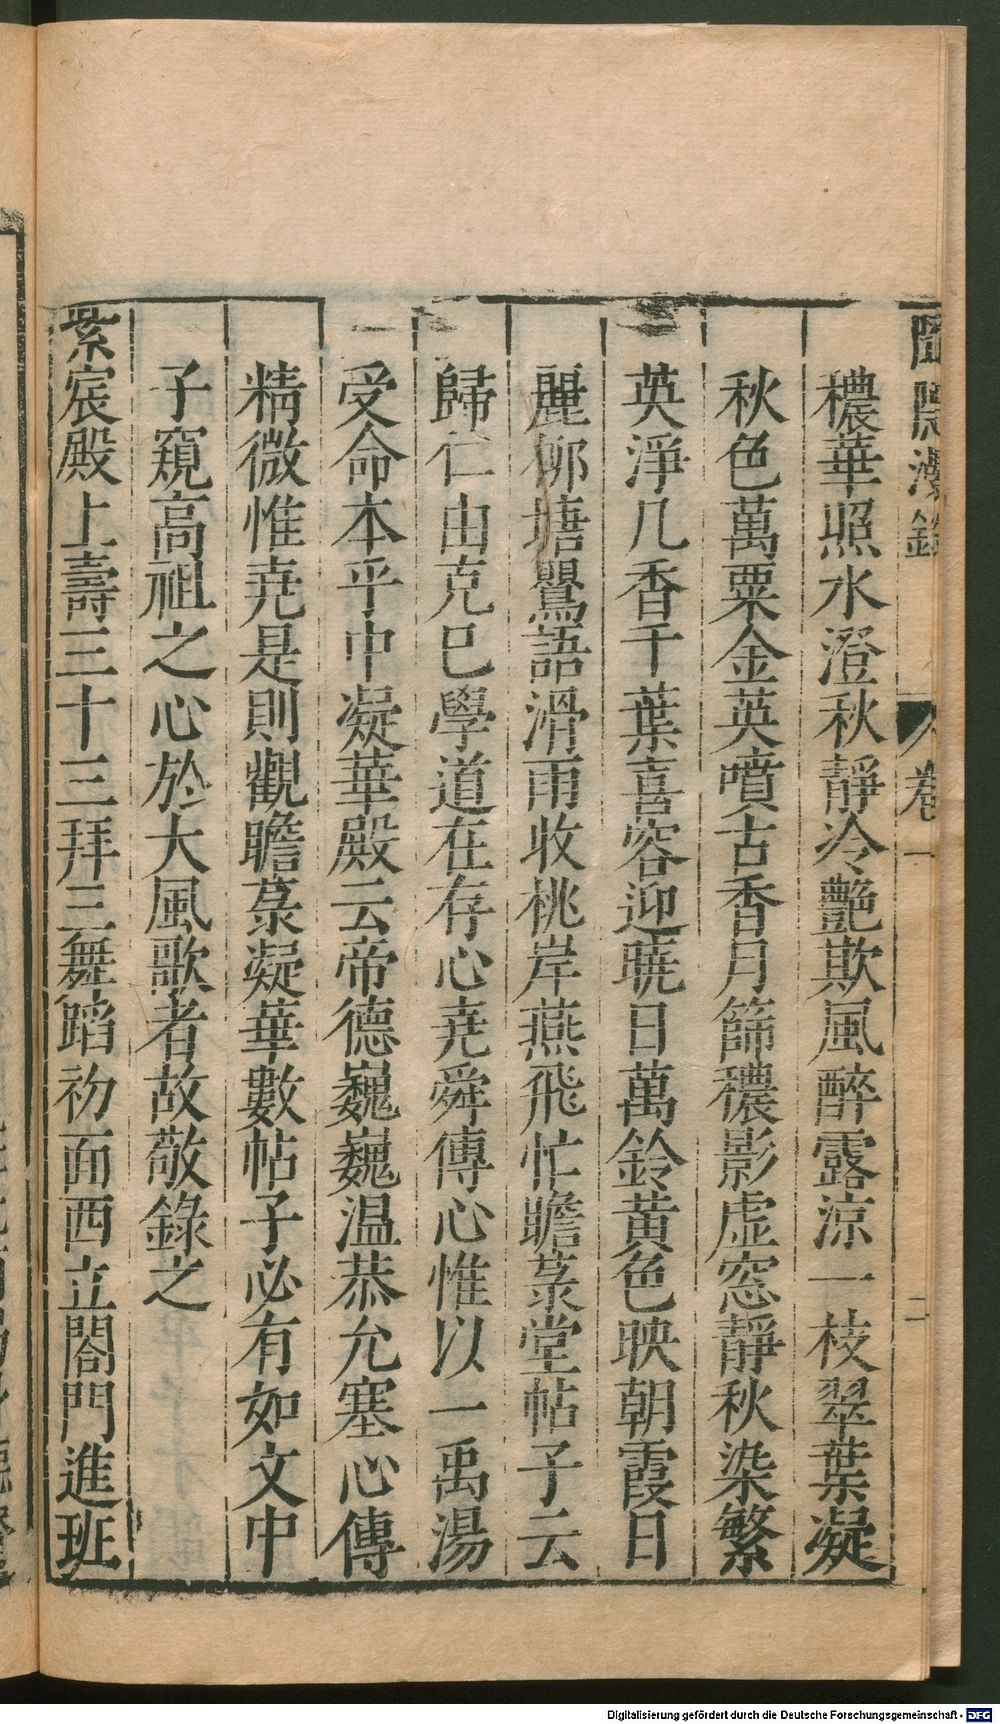 穠華照水澄秋靜冷艷欺風醉露涼一枝翠葉凝
秋色萬粟金英噴古香月篩穠影虛窓靜秋染繁
英淨几香千葉喜容迎曉日萬鈴黄色映朝霞日
麗柳塘鸎語滑雨收桃岸燕飛忙瞻菉堂帖子云
歸仁由克巳學道在存心尭舜傳心惟以一禹湯
受命本乎中凝華殿云帝德巍巍温恭允塞心傳
精微惟尭是則觀瞻菉凝華數帖子必有如文中
子窺高祖之心於大風歌者故敬錄之
紫宸殿上壽三十三拜三舞蹈初面西立閤門進班
卷一
二
Digitalisierung gefördert durch die Deutsche Forschungsgemeinschaft - DFG